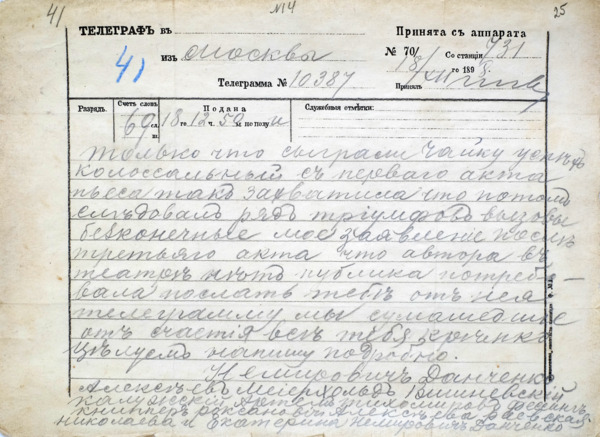 41 №14 25
ТЕЛЕГРАФЪ въ
Принята съ аппарата
изъ Москвы
№ 70/ Со станціи 731
41
18/XII го 189
Телеграмма № 10387
Принялъ
Разрядъ. Счетъ словъ. Подана Служебныя отмѣтки:
69 сл. 18 го 12 ч. 50 м. по полу н
только что сыграли чайку успѣхъ
колоссальный съ перваго акта
пьеса такъ захватила что потомъ
слѣдовалъ рядъ тріумфовъ вызовы
безконечные мое заявленіе послѣ
третьяго акта что автора въ
театрѣ нѣтъ публика потребо
вала послать тебѣ отъ нея
телеграмму мы сумашедшіе
отъ счастія всѣ тебя крѣпко
цѣлуемъ напишу подробно.
Немировичъ Данченко
Алексѣевъ Мейерхольдъ Вишневскій
Калужскій Артемъ Тихомировъ
Книпперъ Роксановичъ Алексѣева
Николаева и Екатерина Немировичъ Данченко